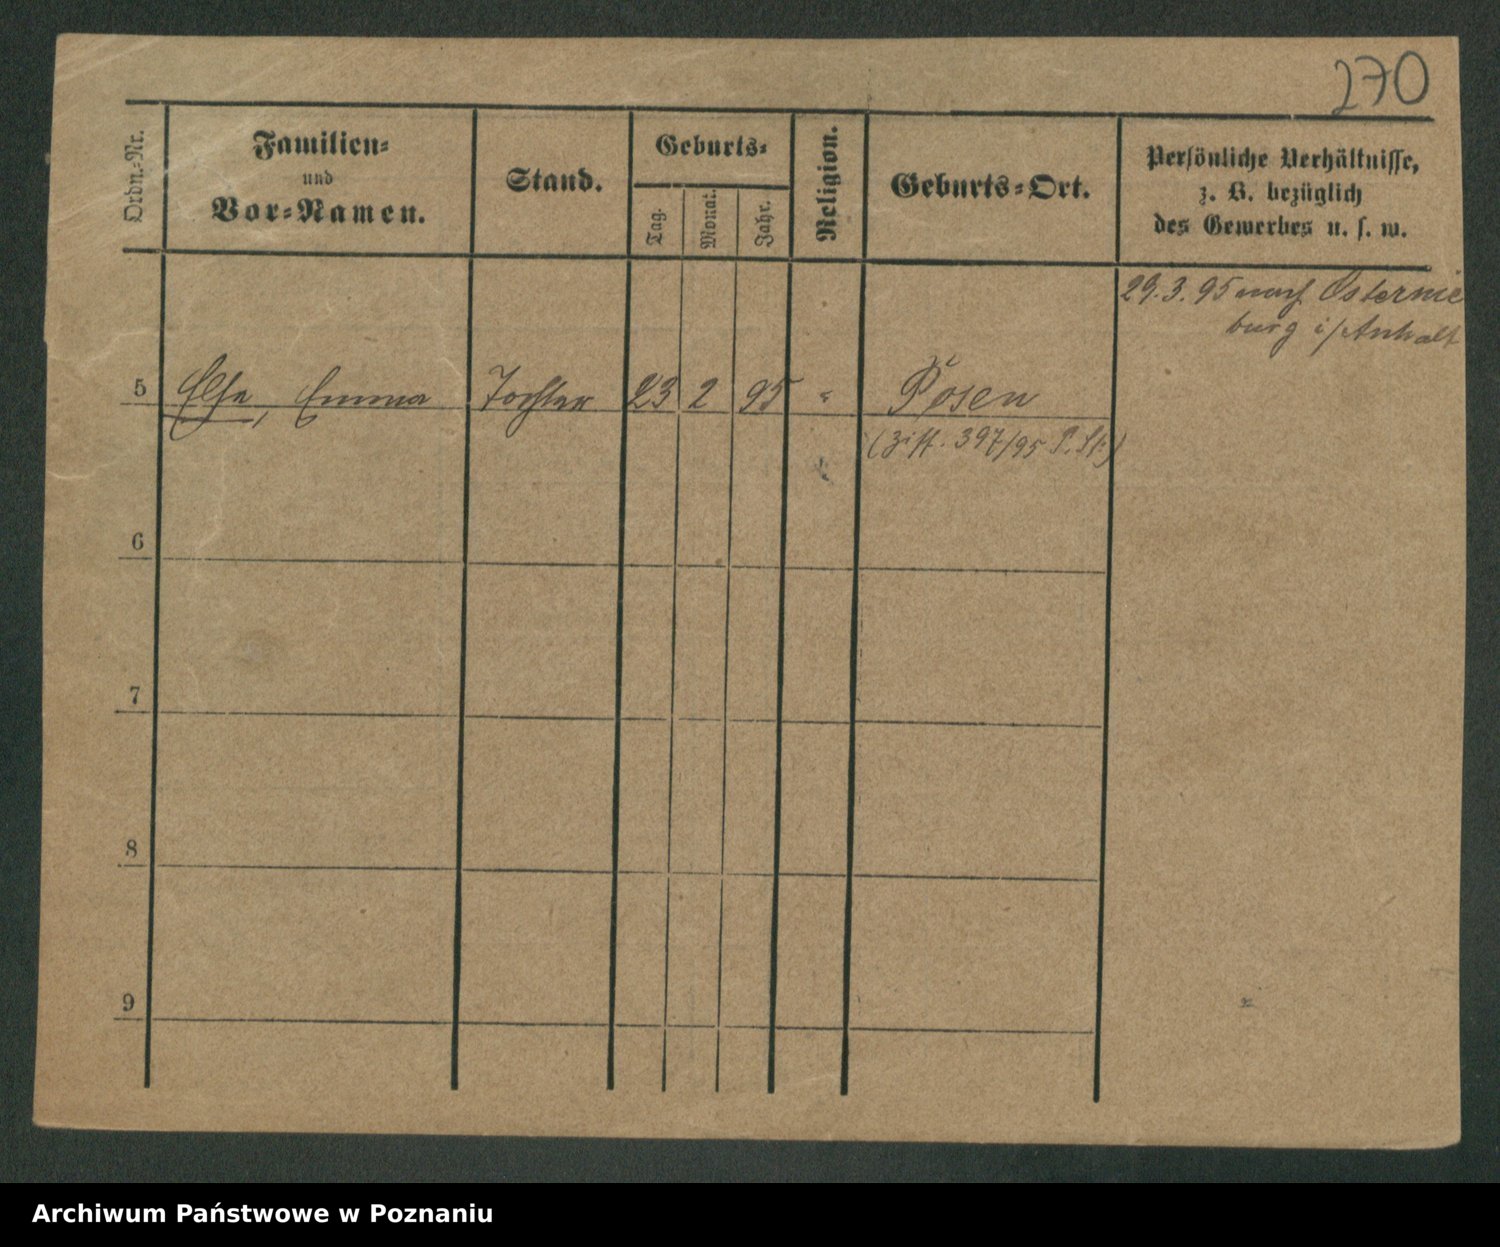 270
Ordn.-Nr.
Familien-
und
Vor-Namen.
Stand.
Geburts-
Tag.
Monat.
Jahr.
Religion.
Geburts-Ort.
Persönliche Verhältnisse,
z. B. bezüglich
des Gewerbes u. s. w.
29.3.95 nach Osternie
burg i/Anhalt
5 Else, Emma Tochter 23 2 95 " Posen
(Ziff. 397/95 P. St.)
6
7
8
9
Archiwum Państwowe w Poznaniu